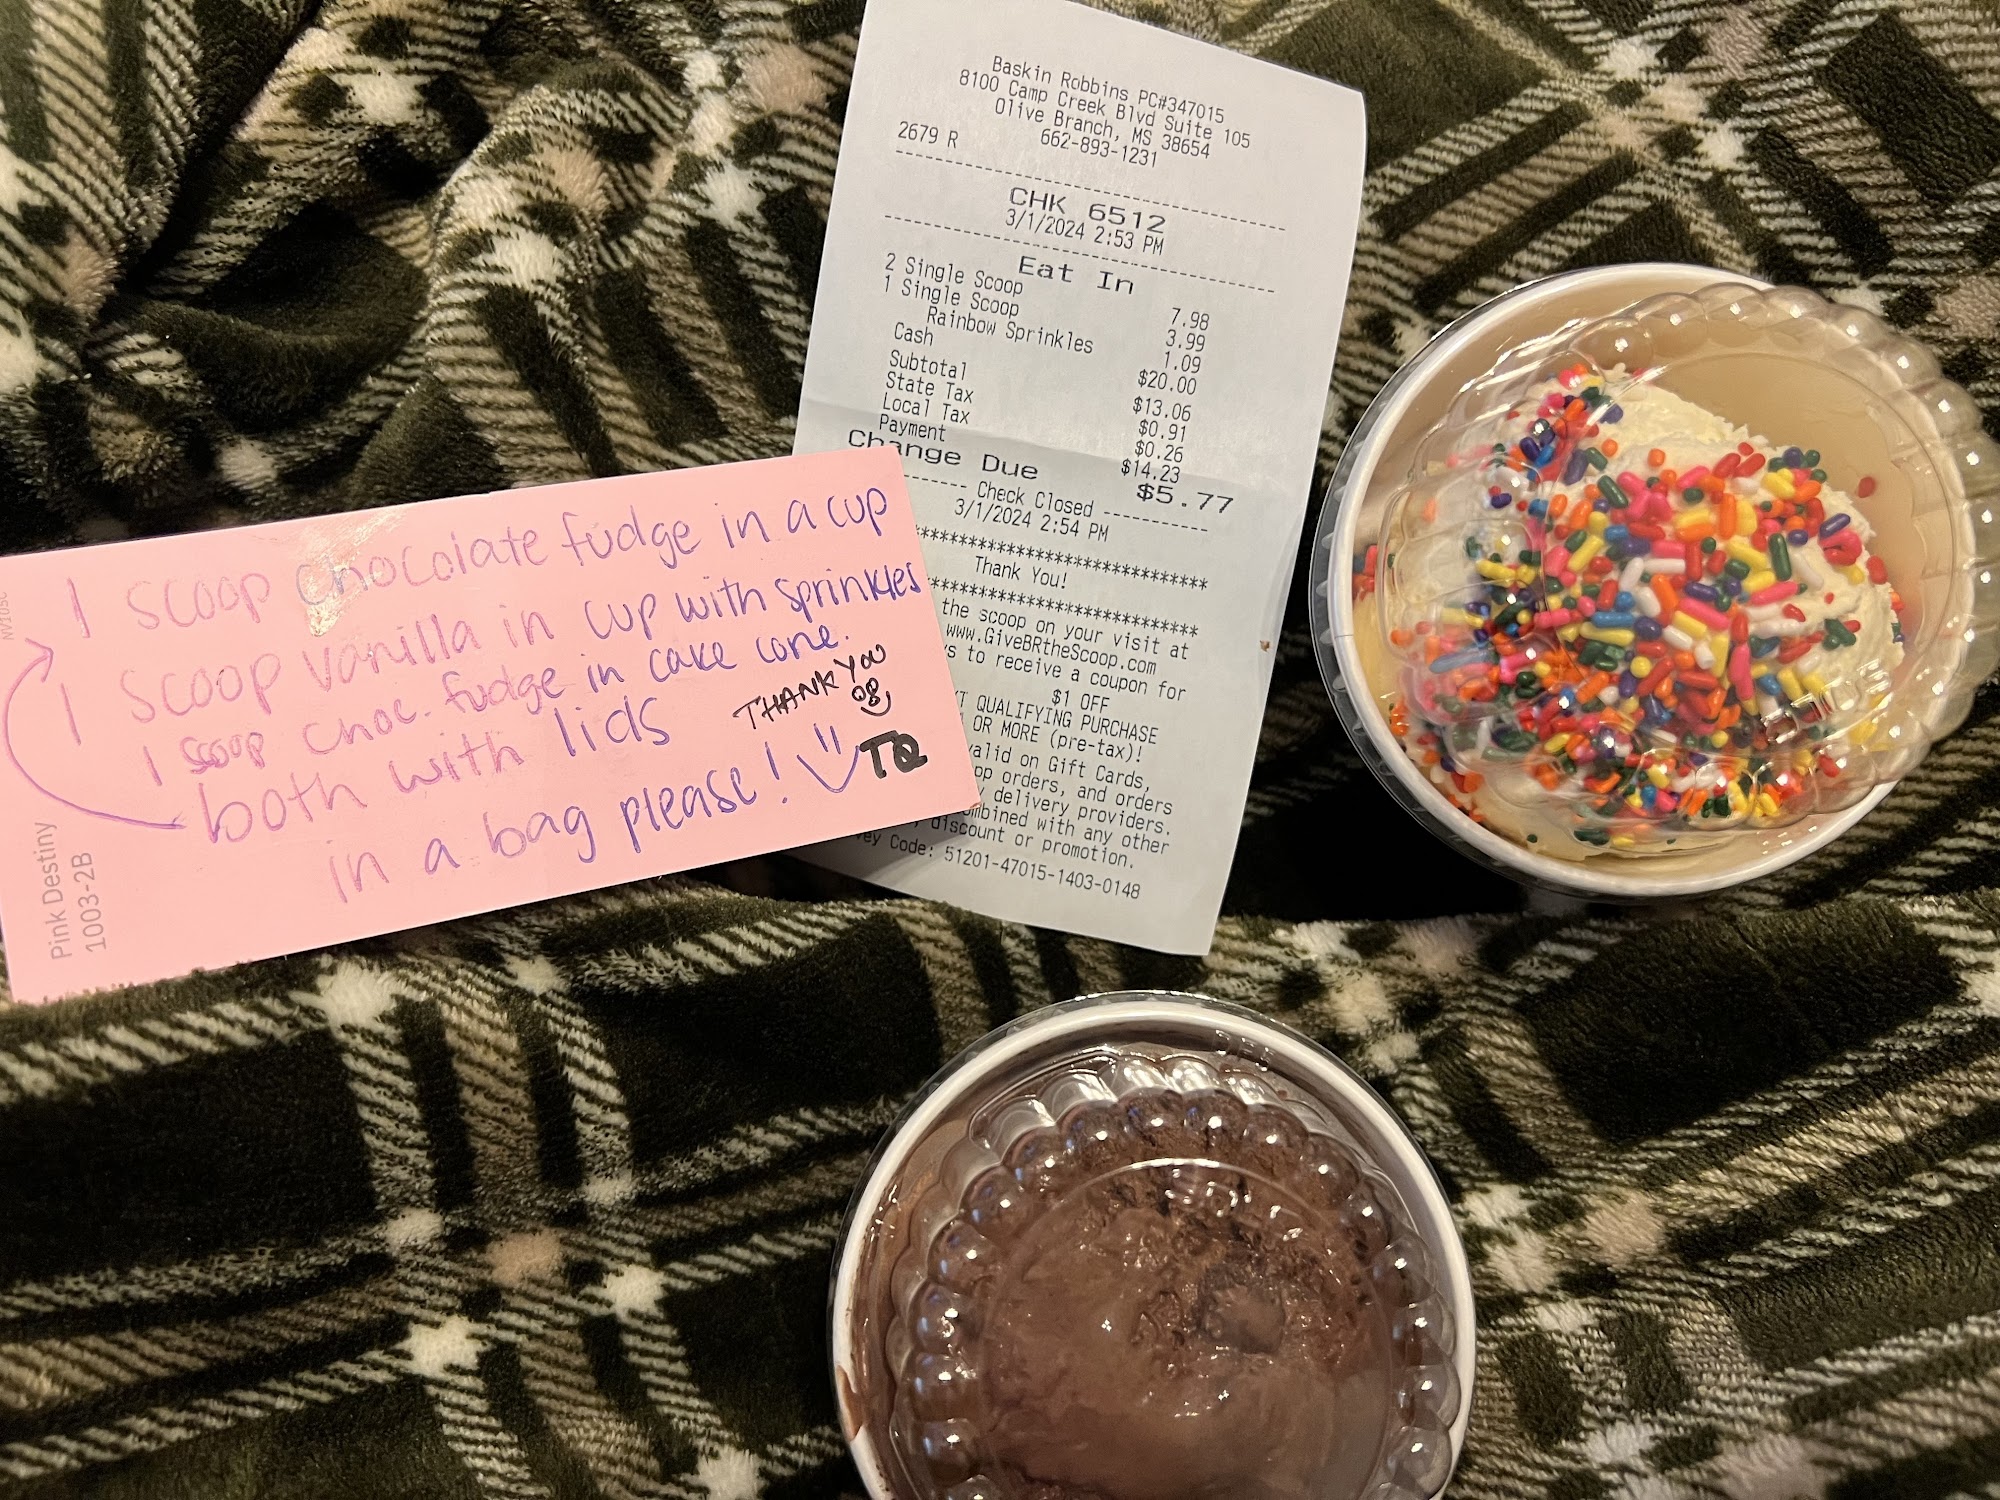 Baskin Robbins PC#347015
8100 Camp Creek Blvd Suite 105
Olive Branch, MS 38654
662-893-1231
2679 R
CHK 6512
3/1/2024 2:53 PM
Eat In
2 Single Scoop 7.98
1 Single Scoop 3.99
Rainbow Sprinkles 1.09
Cash $20.00
Subtotal $13.06
State Tax $0.91
Local Tax $0.26
Payment $14.23
Change Due $5.77
Check Closed
3/1/2024 2:54 PM
************************
Thank You!
************************
the scoop on your visit at
www.GiveBRtheScoop.com
s to receive a coupon for
$1 OFF
QUALIFYING PURCHASE
OR MORE (pre-tax)!
alid on Gift Cards,
op orders, and orders
delivery providers.
mbined with any other
discount or promotion.
ey Code: 51201-47015-1403-0148
1 scoop chocolate fudge in a cup
1 scoop vanilla in cup with sprinkles
1 scoop choc. fudge in cake cone.
both with lids
in a bag please!
THANK YOU
TQ
NV10SC
Pink Destiny
1003-2B